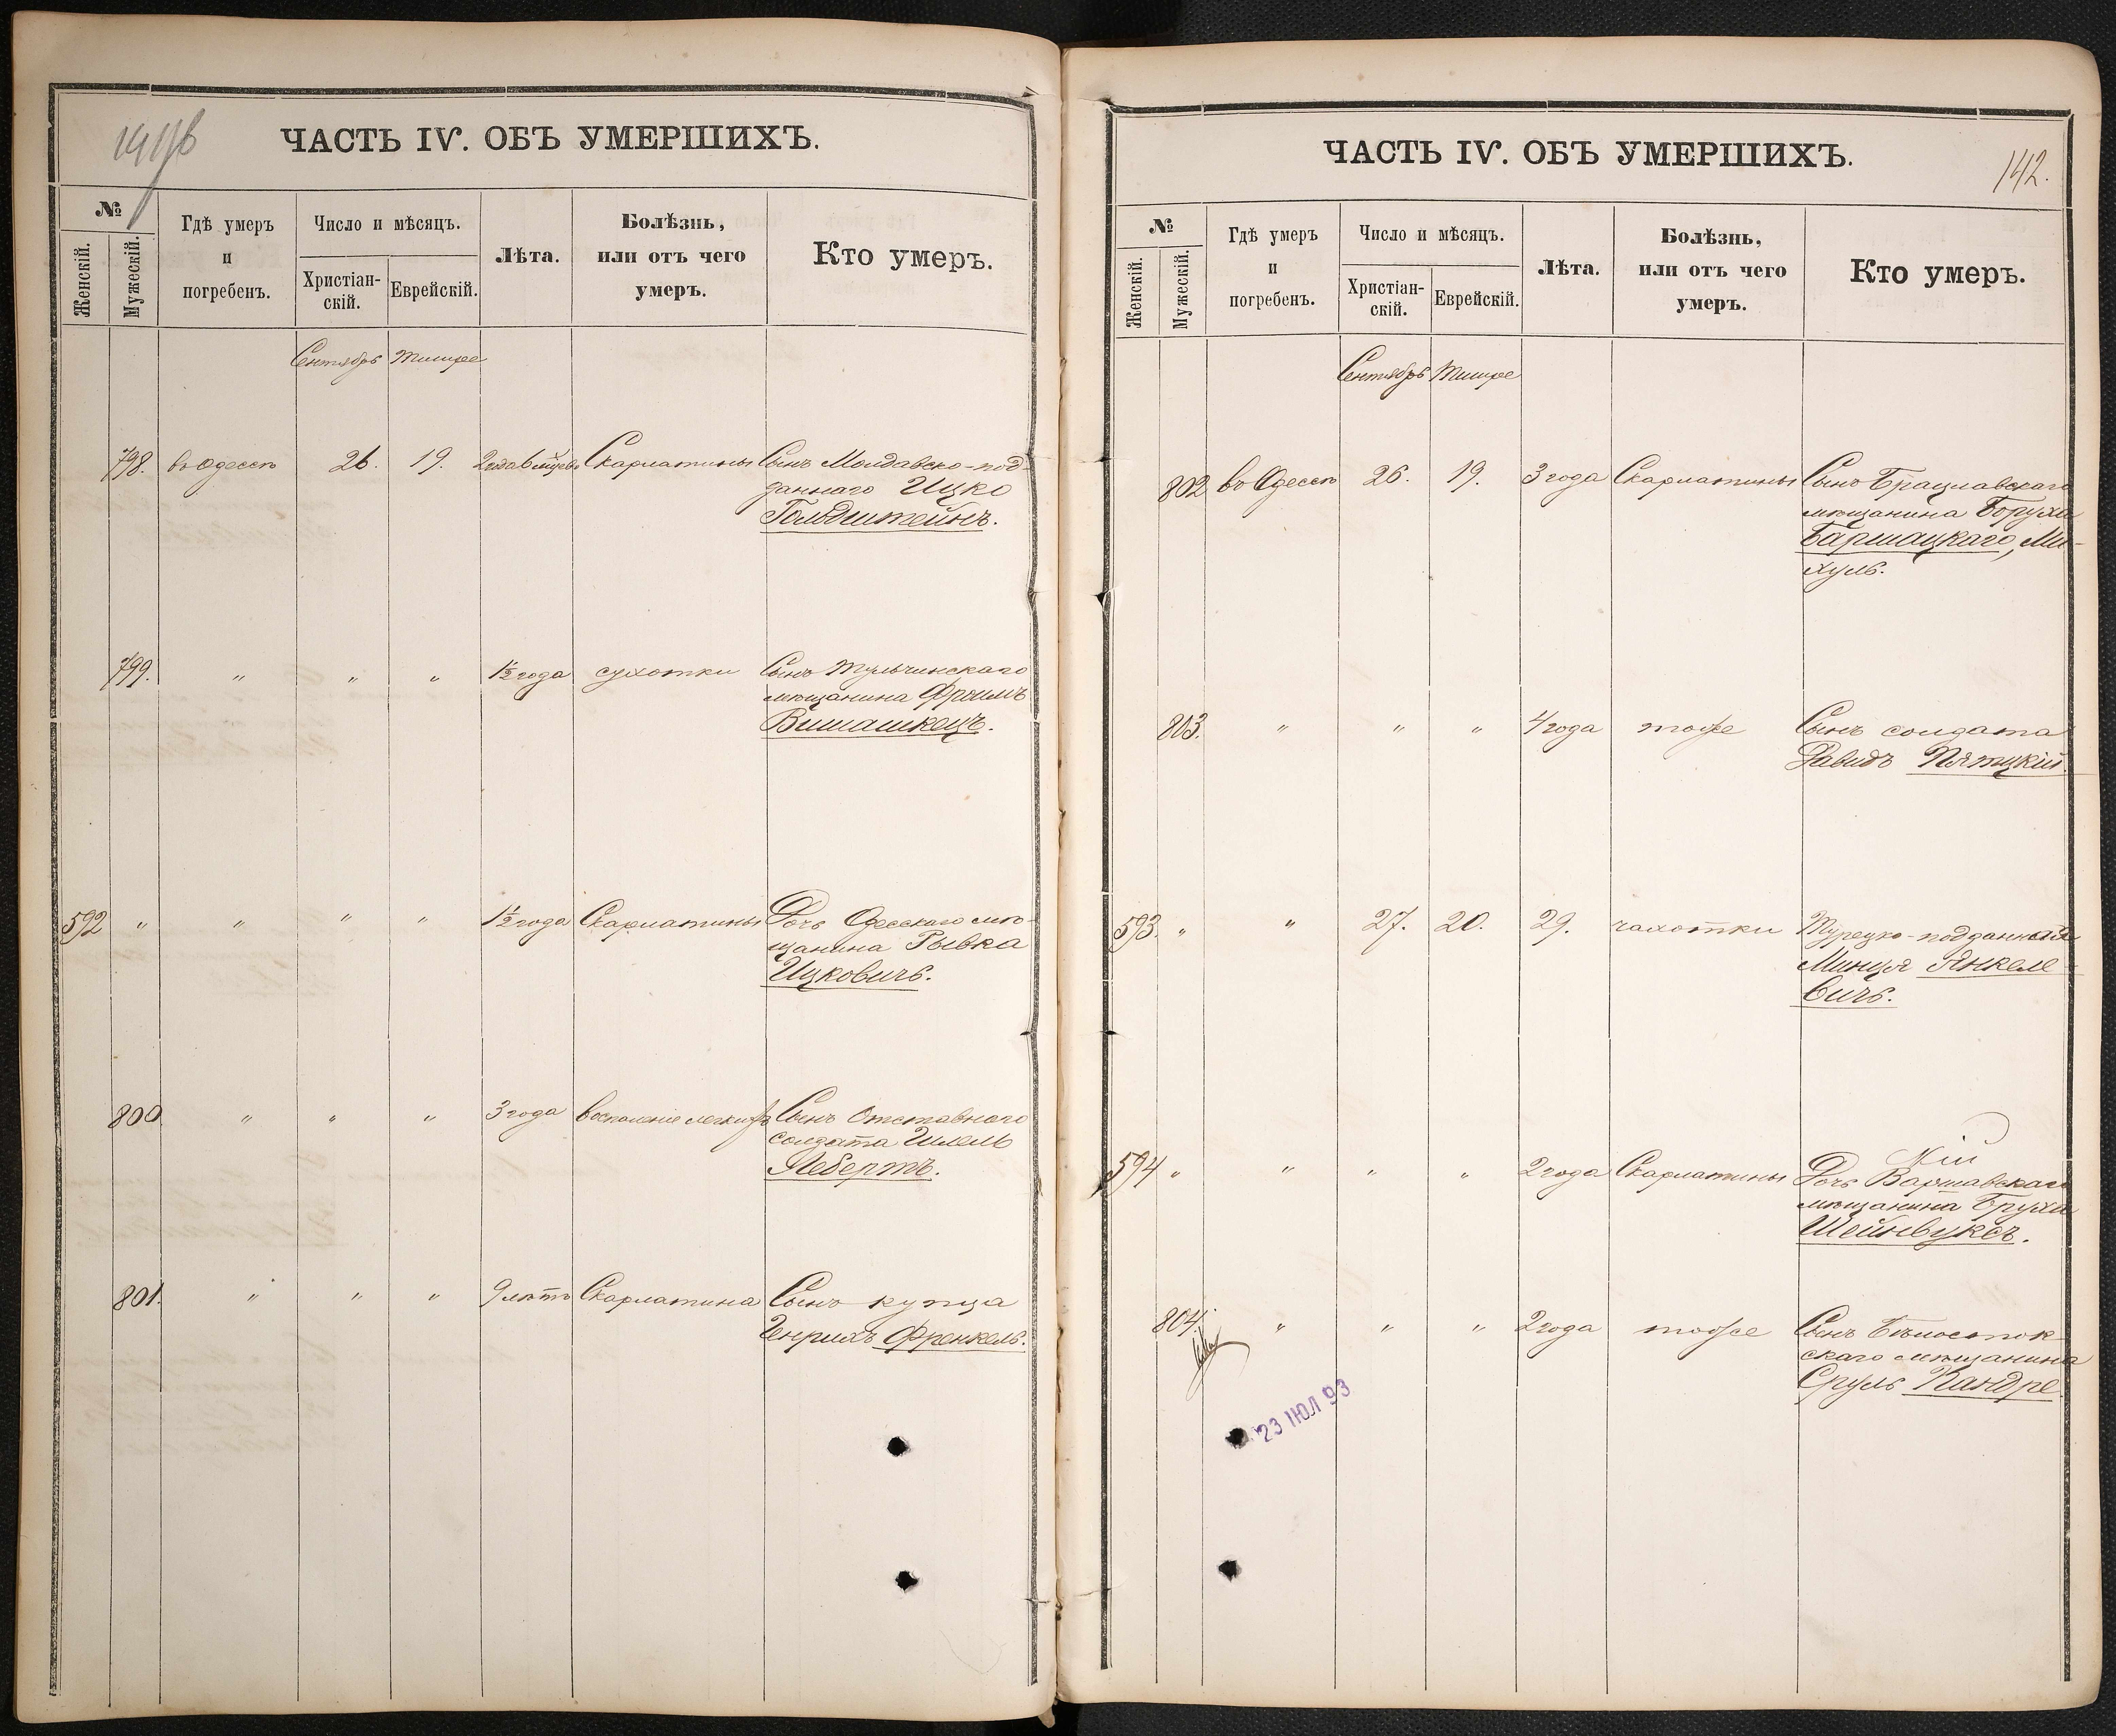 141/б
ЧАСТЬ IV. ОБЪ УМЕРШИХЪ.
№
Женскій.
Мужескій.
Гдѣ умеръ
и
погребенъ.
Число и мѣсяцъ.
Христіан-
скій.
Еврейскій.
Лѣта.
Болѣзнь,
или отъ чего
умеръ.
Кто умеръ.
Сентябрь Тишре
798. въ Одессѣ 26. 19. 2 года 6 мѣсяцевъ Скарлатины Сынъ Молдавско-под-
даннаго Ицко
Гольдштейнъ.
799. " " " 1½ года сухотки Сынъ Тульчинскаго
мѣщанина Фроимъ
Вишашкецъ.
592 " " " " 1½ года Скарлатины Дочь Одесскаго мѣ-
щанина Рывка
Ицковичъ.
800 " " " 3 года Воспаленіе легкихъ Сынъ Отставнаго
солдата Шмель
Лебертъ.
801. " " " 9 лѣтъ Скарлатина Сынъ купца
Генрихъ Френкель.
ЧАСТЬ IV. ОБЪ УМЕРШИХЪ.
142.
№
Женскій.
Мужескій.
Гдѣ умеръ
и
погребенъ.
Число и мѣсяцъ.
Христіан-
скій.
Еврейскій.
Лѣта.
Болѣзнь,
или отъ чего
умеръ.
Кто умеръ.
Сентябрь Тишре
802 въ Одессѣ 26. 19. 3 года Скарлатины Сынъ Брацлавскаго
мѣщанина Боруха
Баршацкаго, Ми-
хуль.
803. " " " 4 года тоже Сынъ солдата
Давидъ Пятицкій.
593. " " 27. 20. 29. чахотки Турецко-подданная
Минця Янкеле-
вичъ.
594 " " " " 2 года Скарлатины Дочь Варшавскаго
мѣщанина Бруха
Шейнвуксъ.
804. " " " 2 года тоже Сынъ Бѣлосток-
скаго мѣщанина
Сруль Кандре.
23 ІЮЛ 93